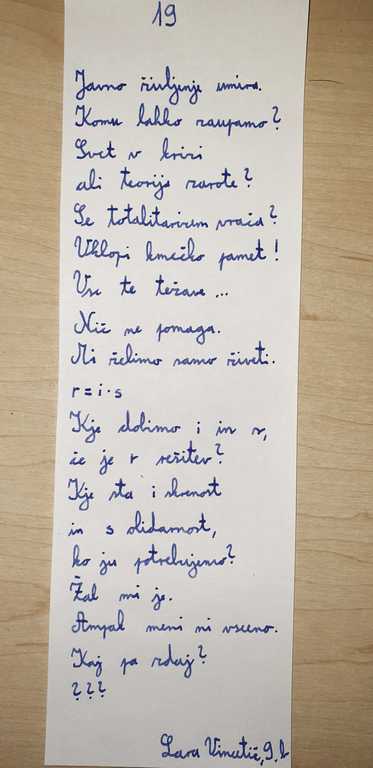 19
Javno življenje umira.
Komu lahko zaupamo?
Svet v krizi
ali teorija zarote?
Se totalitarizem vrača?
Vklopi kmečko pamet!
Vse te težave...
Nič ne pomaga.
Mi želimo samo živeti.
r=i·s
Kje dobimo i in s,
če je r rešitev?
Kje sta i skrenost
in s olidarnost,
ko ju potrebujemo?
Žal mi je.
Ampak meni ni vseeno.
Kaj pa zdaj?
???
Lara 9.b